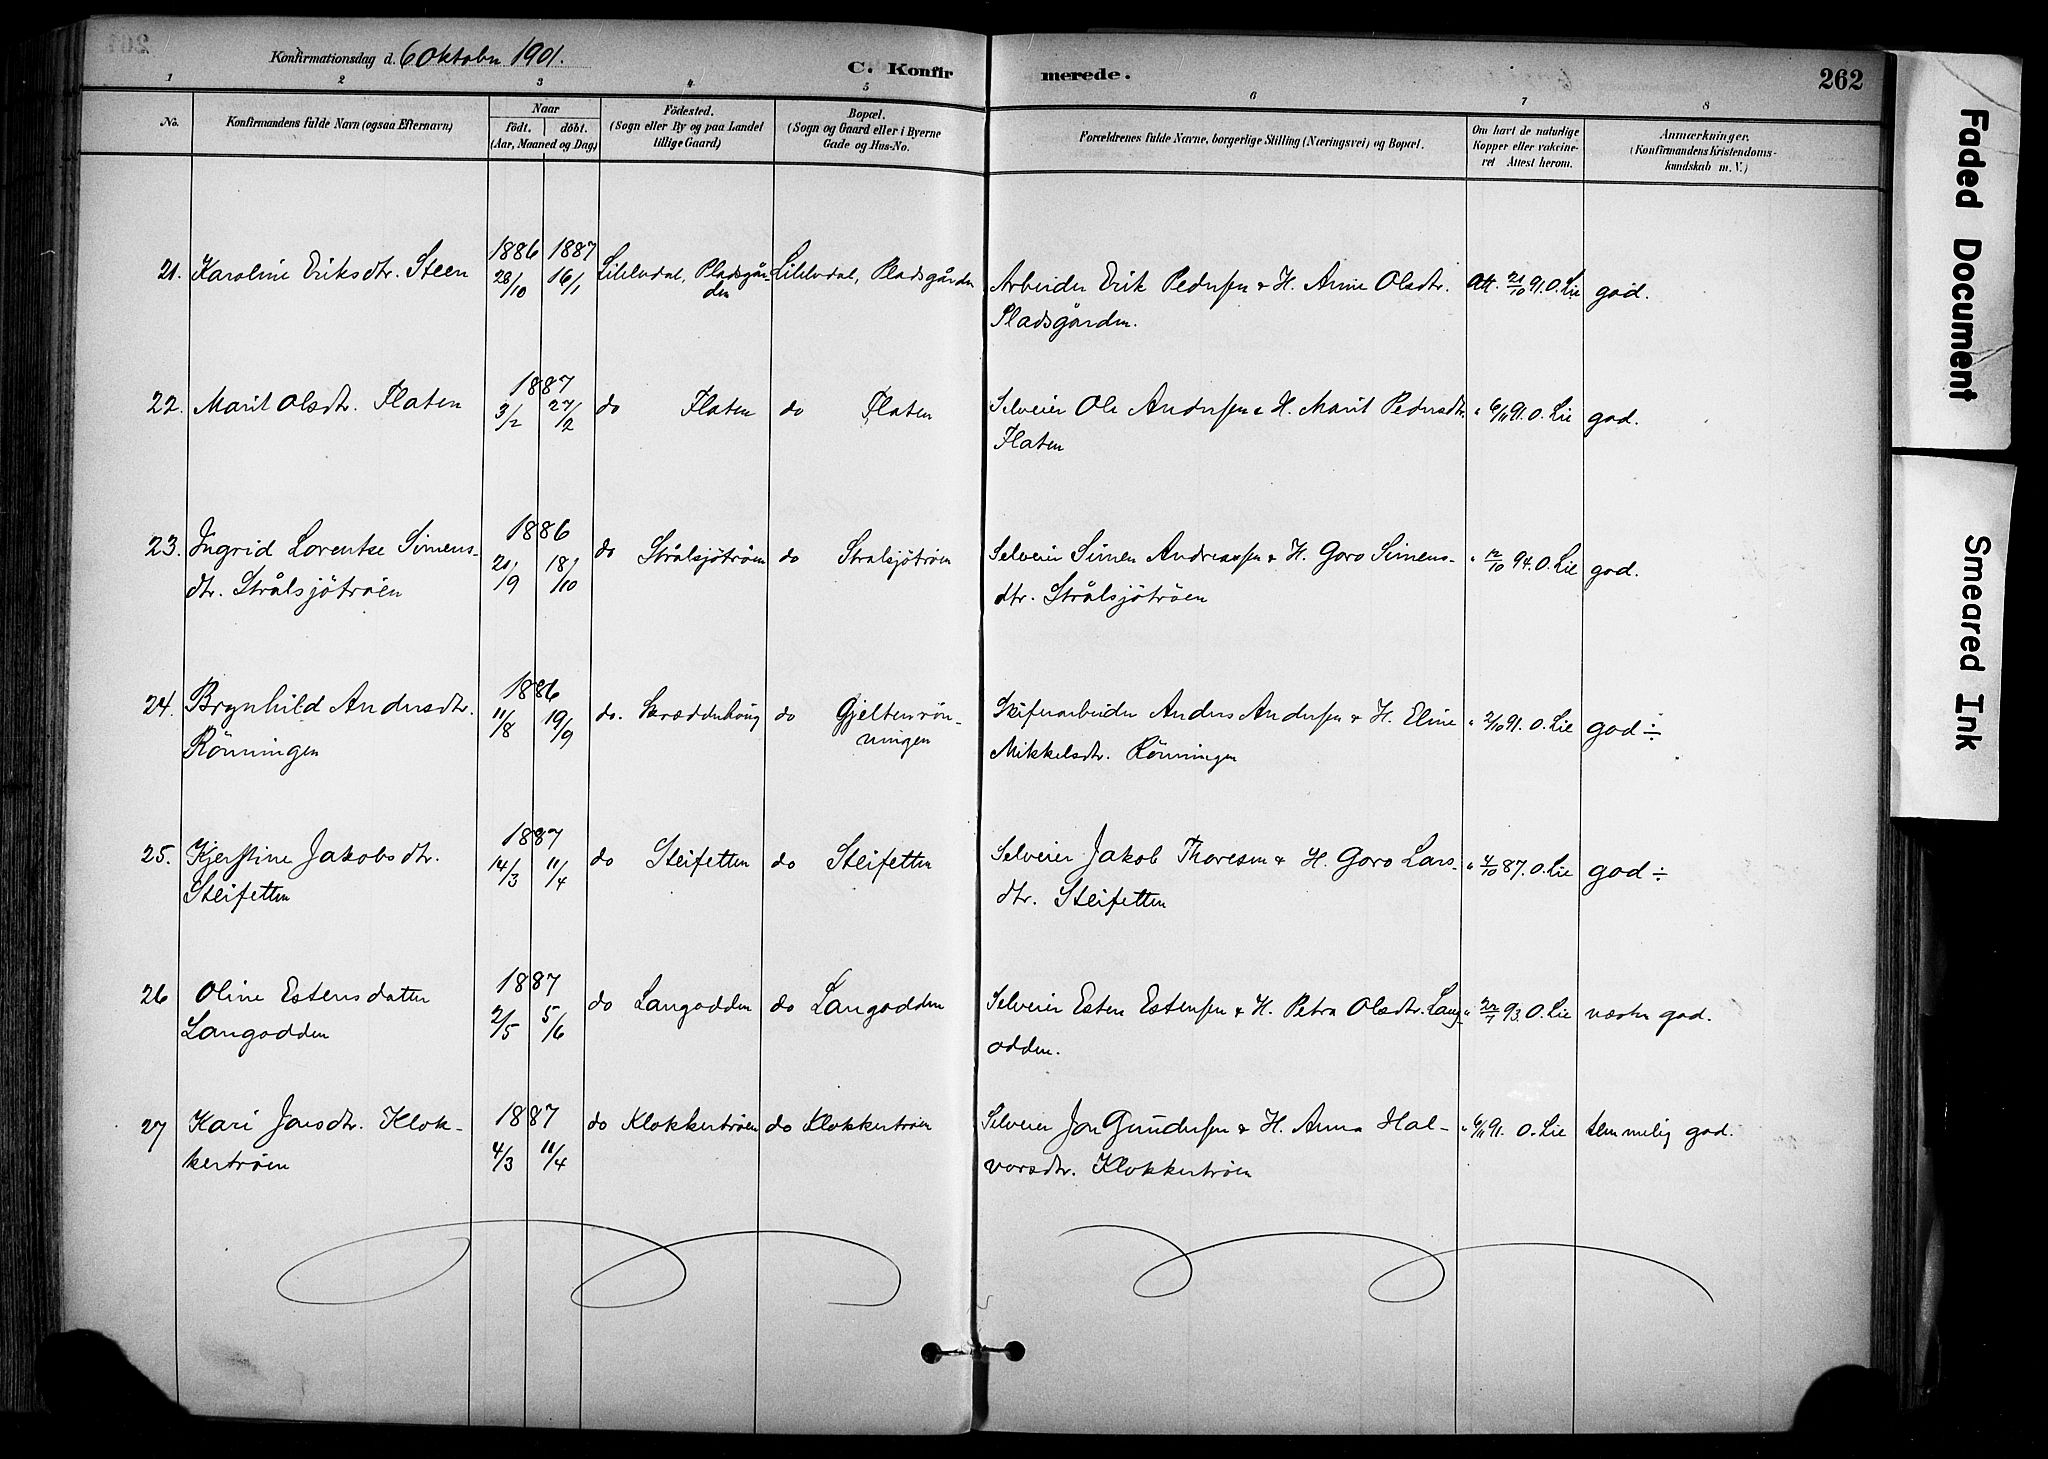 Konfirmationsdag d. 6 Oktober 1901.
C. Konfirmerede.
262
1 2 3 4 5 6 7 8
No.
Konfirmandens fulde Navn (ogsaa Efternavn)
Naar
födt. döbt.
(Aar, Maaned og Dag)
Födested.
(Sogn eller By og paa Landet
tillige Gaard)
Bopæl.
(Sogn og Gaard eller i Byerne
Gade og Hus-No.
Forældrenes fulde Navne, borgerlige Stilling (Næringsvei) og Bopæl.
Om havt de naturlige
Kopper eller vakcine-
ret Attest herom.
Anmærkninger.
(Konfirmandens Kristendoms-
kundskab m.V.)
1886 1887
21. Karoline Eriksdtr. Steen 28/10 16/1 Lilelvdal, Pladsgår- Lilelvdal, Pladsgården Arbeider Erik Pedersen & H. Anne Olsdtr. Att. 21/10 91. O. Lie god.
den
Pladsgården.
1887
22. Marit Olsdtr. Flaten 3/2 27/2 do Flaten do Flaten Selveier Ole Andersen & H. Marit Pedersdtr. " 6/11 91. O. Lie god.
Flaten
1886
23. Ingrid Lorentse Simens- 21/9 18/10 do Strålsjötröen do Strålsjötröen Selveier Simen Andreassen & H. Goro Simens- " 12/10 94. O. Lie god.
dtr. Strålsjötröen dtr. Strålsjötröen
1886
24. Brynhild Andersdtr. 11/8 19/9 do. Skrædderhaug do Gjeltenrön- Skiferarbeider Anders Andersen & H. Eline " 2/10 91. O. Lie god ÷
Rönningen ningen Mikkelsdtr. Rönningen
1887
25. Kjerstine Jakobsdtr. 14/3 11/4 do Steifetten do Steifetten Selveier Jakob Thoresen & H. Goro Lars- " 4/10 87. O. Lie god ÷
Steifetten dtr. Steifetten
1887
26 Oline Estensdatter 2/5 5/6 do Langodden do Langodden Selveier Esten Estensen & H. Petra Olsdtr. Lang- " 22/7 93. O. Lie næsten god.
Langodden odden.
1887
27 Kari Jonsdtr. Klok- 4/3 11/4 do Klokkertröen do Klokkertröen Selveier Jon Gundersen & H. Anna Hal- " 6/11 91. O. Lie temmelig god.
kertröen vorsdtr. Klokkertröen
Faded Document
Smeared Ink